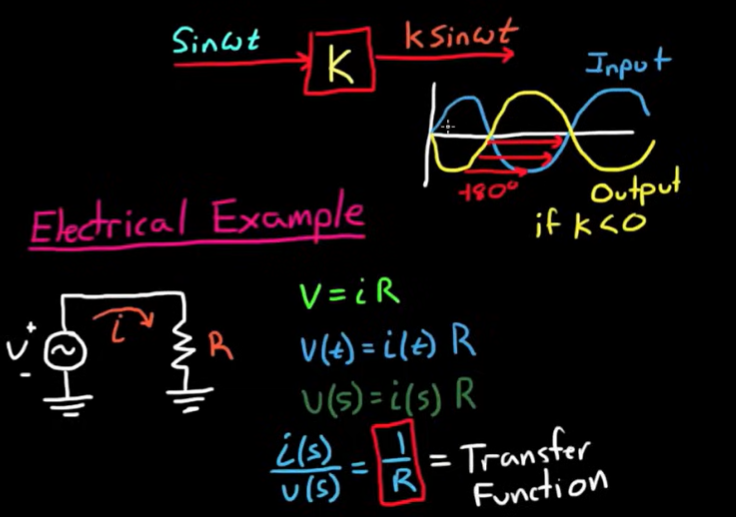 Sinωt
K
k sinωt
Input
-180°
Output
if k<0
Electrical Example
V = i R
V(t) = i(t) R
V(s) = i(s) R
i(s)/v(s) = 1/R = Transfer Function
V + -
i
R